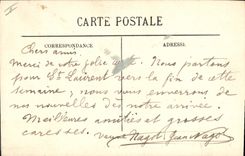 CARTE POSTALE
CORRESPONDANCE
ADRESSE
Chers amis
Merci de votre jolie carte. Nous partons
pour St Laurent vers la fin de cette
semaine, nous vous enverrons de
nos nouvelles dès notre arrivée.
Meilleures amitiés et grosses
caresses.